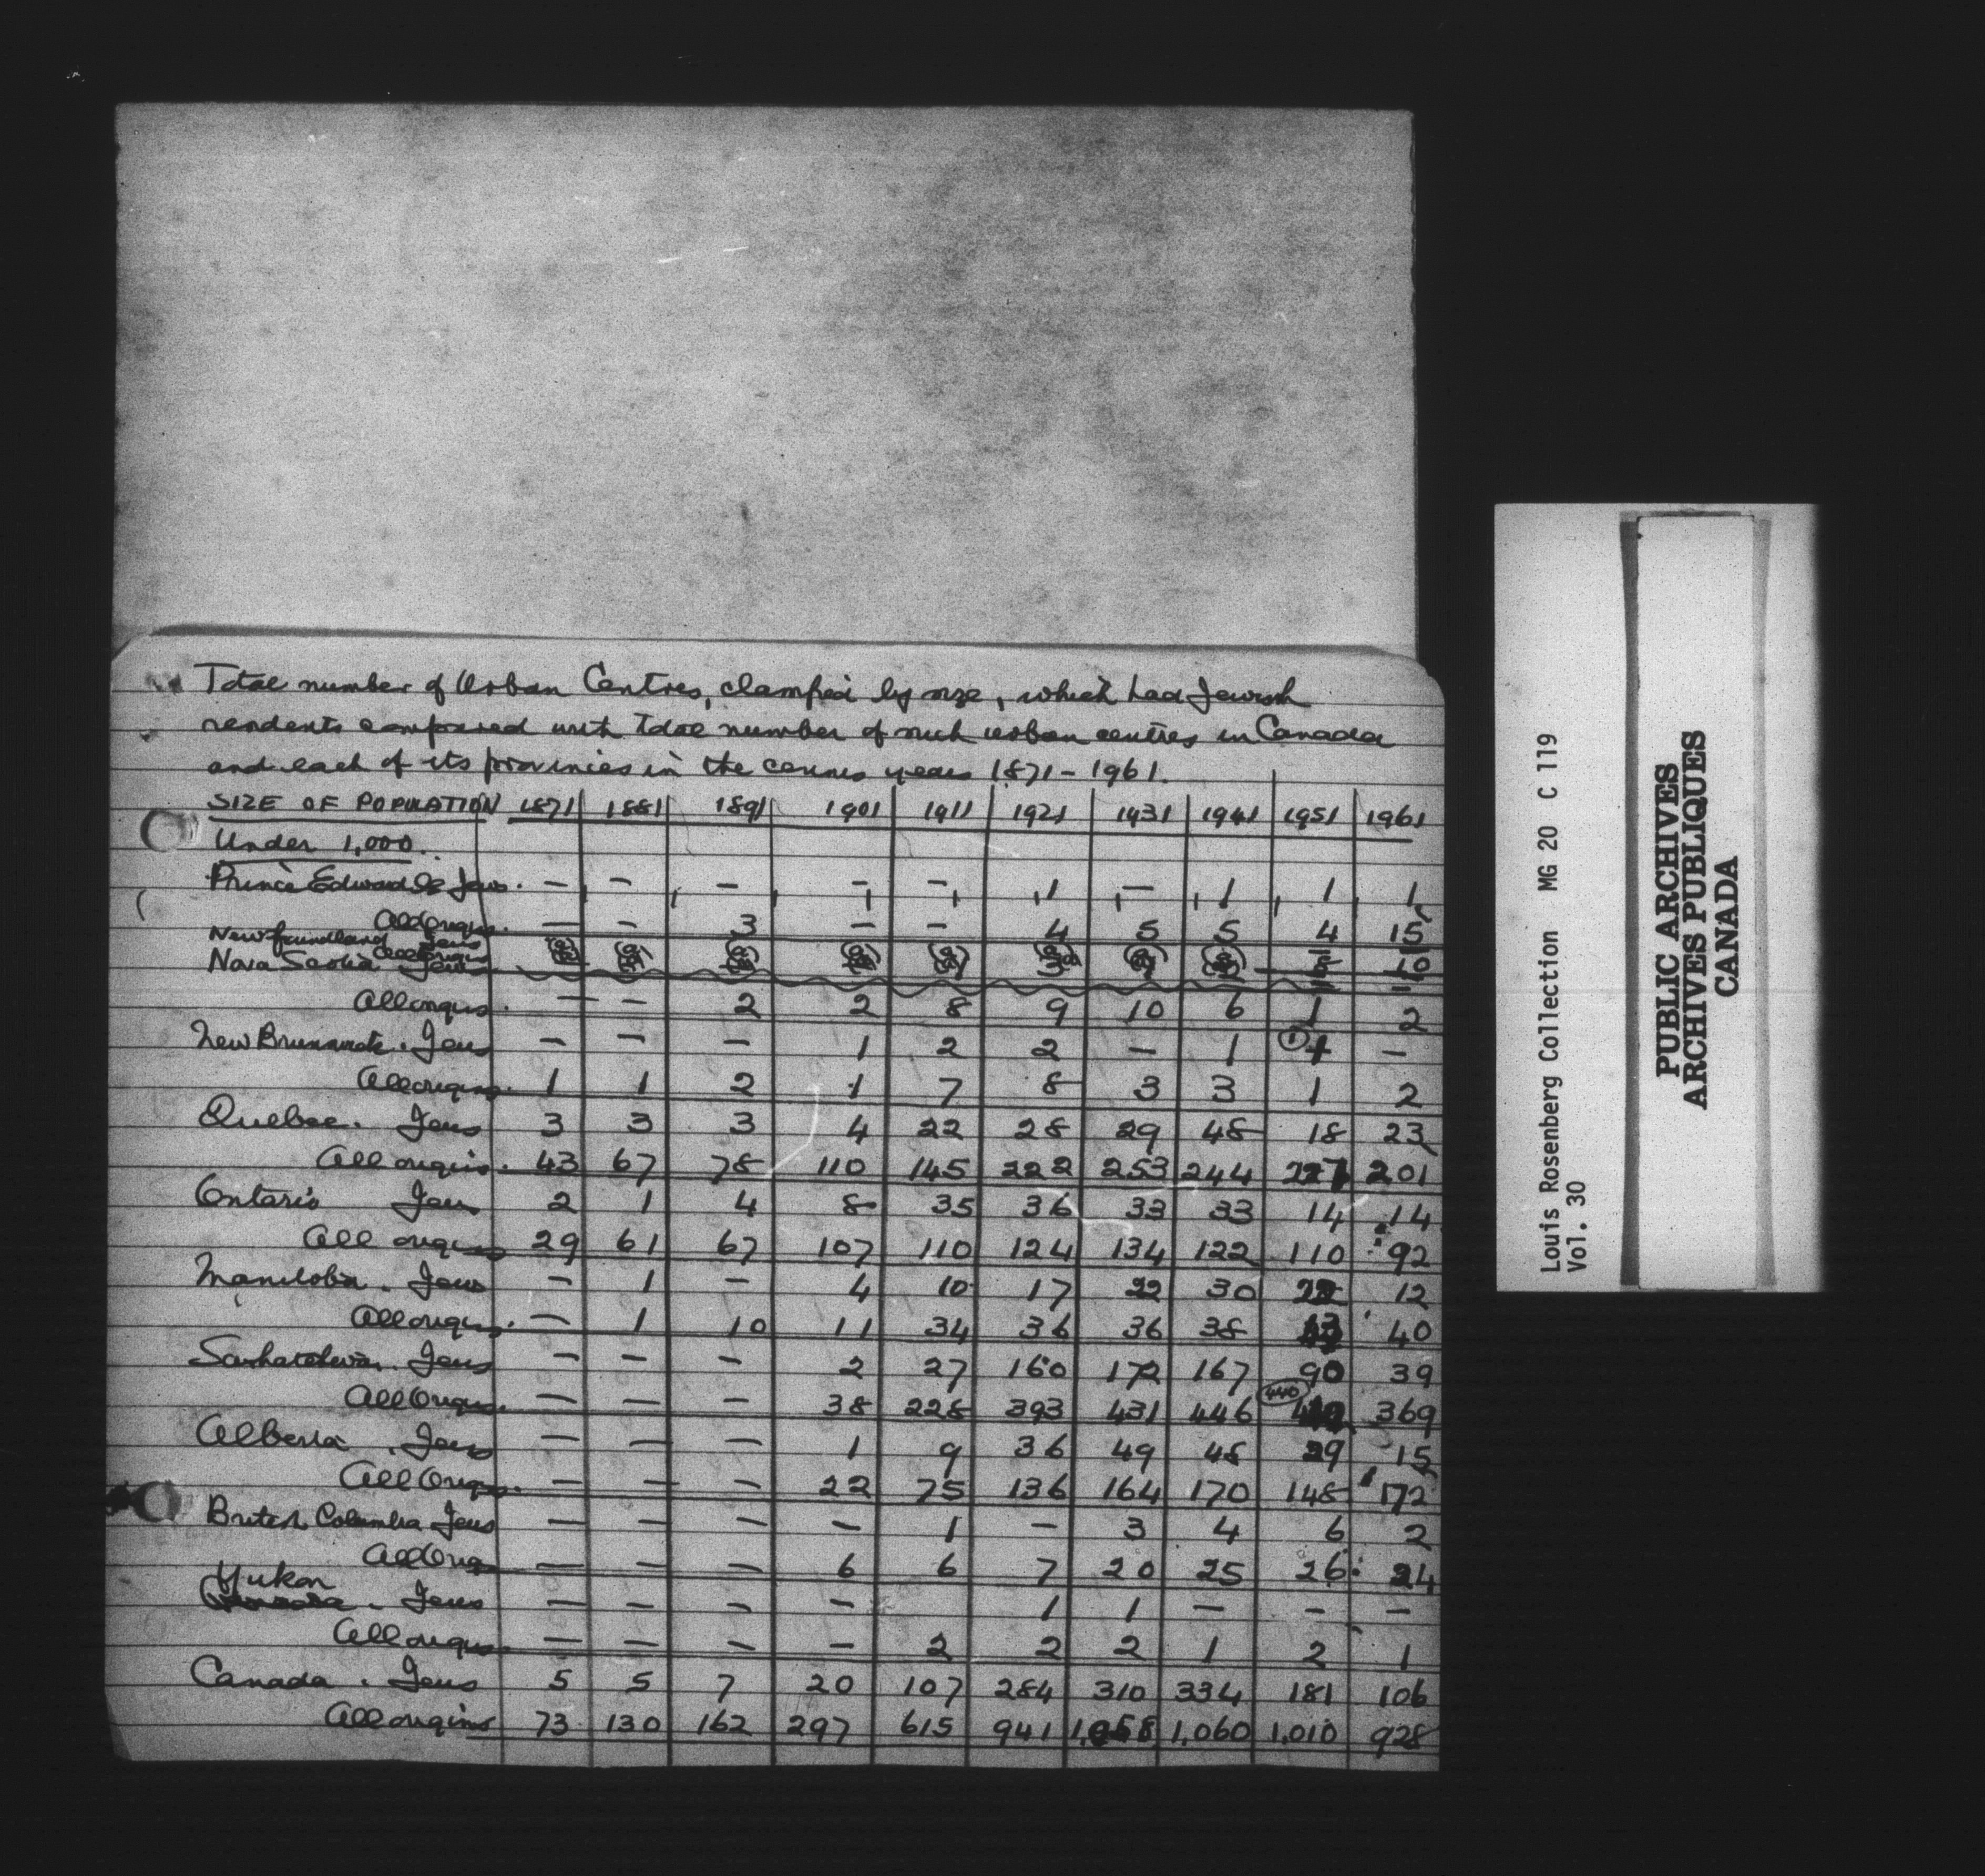 Total number of Urban Centres, classified by size, which had Jewish
residents compared with total number of such urban centres in Canada
and each of its provinces in the census years 1871 - 1961.
SIZE OF POPULATION 1871 1881 1891 1901 1911 1921 1931 1941 1951 1961
Under 1,000.
Prince Edward Is Jews. — — — — — 1 — 1 1 1
All Origins. — — 3 — — 4 5 5 4 15
Newfoundland Jews
All Origins 10
Nova Scotia Jews
All origins. — — 2 2 8 9 10 6 1 2
New Brunswick. Jews — — — 1 2 2 — 1 1 —
All origins. 1 1 2 1 7 8 3 3 1 2
Quebec. Jews 3 3 3 4 22 28 29 48 18 23
All origins. 43 67 78 110 145 222 253 244 227 201
Ontario Jews 2 1 4 8 35 36 33 33 14 14
All origins 29 61 67 107 110 124 134 122 110 92
Manitoba. Jews — 1 — 4 10 17 22 30 22 12
All origins. — 1 10 11 34 36 36 38 43 40
Saskatchewan. Jews — — — 2 27 160 172 167 90 39
All Origins. — — — 38 228 393 431 446 440 369
Alberta. Jews — — — 1 9 36 49 48 29 15
All Orig. — — — 22 75 136 164 170 148 172
British Columbia Jews — — — — 1 — 3 4 6 2
All Orig — — — 6 6 7 20 25 26 24
Yukon
Jews — — — — 1 1 — — —
All origins — — — — 2 2 2 1 2 1
Canada. Jews 5 5 7 20 107 284 310 334 181 106
All origins 73 130 162 297 615 941 1,058 1,060 1,010 928
Louis Rosenberg Collection MG 20 C 119
Vol. 30
PUBLIC ARCHIVES
ARCHIVES PUBLIQUES
CANADA